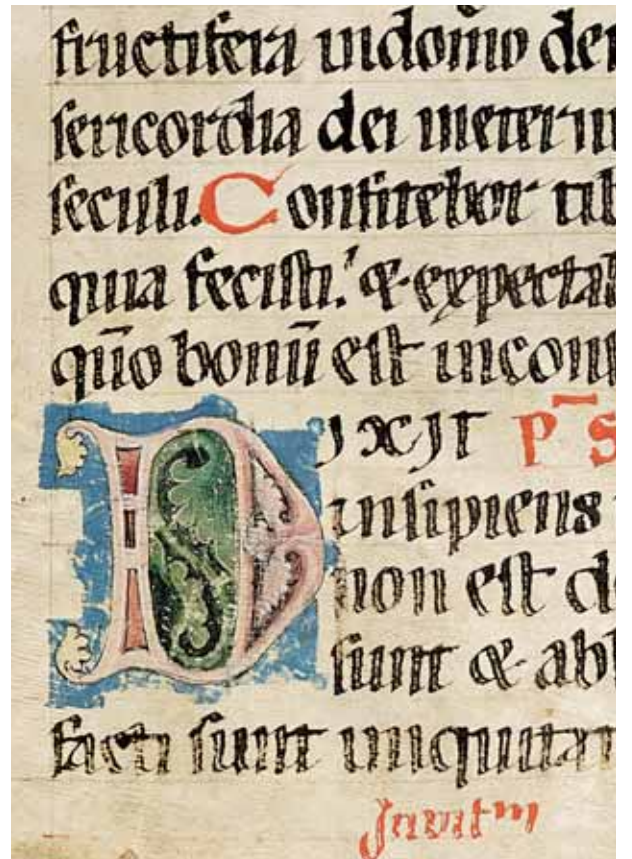 fructifera in domo dei
sericordia dei in etern
seculi. Confitebor tib
quia fecisti. & expecta
qm̄o bonū est in cons
DIXIT p̄ s
insipiens
non est d
sunt & ab
facti sunt iniquita